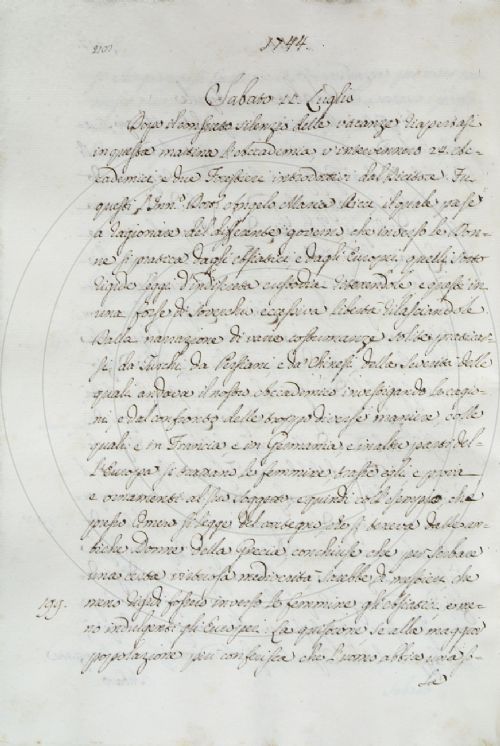 1744.
Sabato 11. Luglio
Dopo il consueto silenzio delle vacanze riapertasi
in questa mattina l'Accademia v'intervennero 24. Ac-
cademici, e due Forestieri introdotti dal Rettore. Fu
questi l'Ill.mo Dott. Angelo Maria Ricci il quale prese
a ragionare del differente governo che inverso le Don-
ne si pratica dagli Asiatici, e dagli Europei, quelli sotto
rigide leggi d'indiscreta custodia ritenendole e questi in
una forse di soverchio eccessiva libertà rilasciandole
Dalla narrazione di varie costumanze solite praticar-
si da Turchi, da Persiani, e da Chinesi della severità delle
quali andava il nostro Accademico investigando le cagio-
ni, e dal confronto delle troppo diverse maniere, colle
quali, e in Francia, e in Germania, e in altre parti del-
l'Europa si trattan le femmine, trasse egli e prova
e ornamento al suo soggetto, e quindi coll'esempio che
presso Omero si legge del contegno che si teneva dalle an-
tiche Donne della Grecia conchiuse che per serbare
una certa virtuosa mediocrità sarebbe di mestieri che
meno rigidi fossero inverso le femmine gli Asiatici, e me-
no indulgenti gli Europei. La quistione se alla maggior
199.
popolazione più conferisca che l'uomo abbia una s-
la